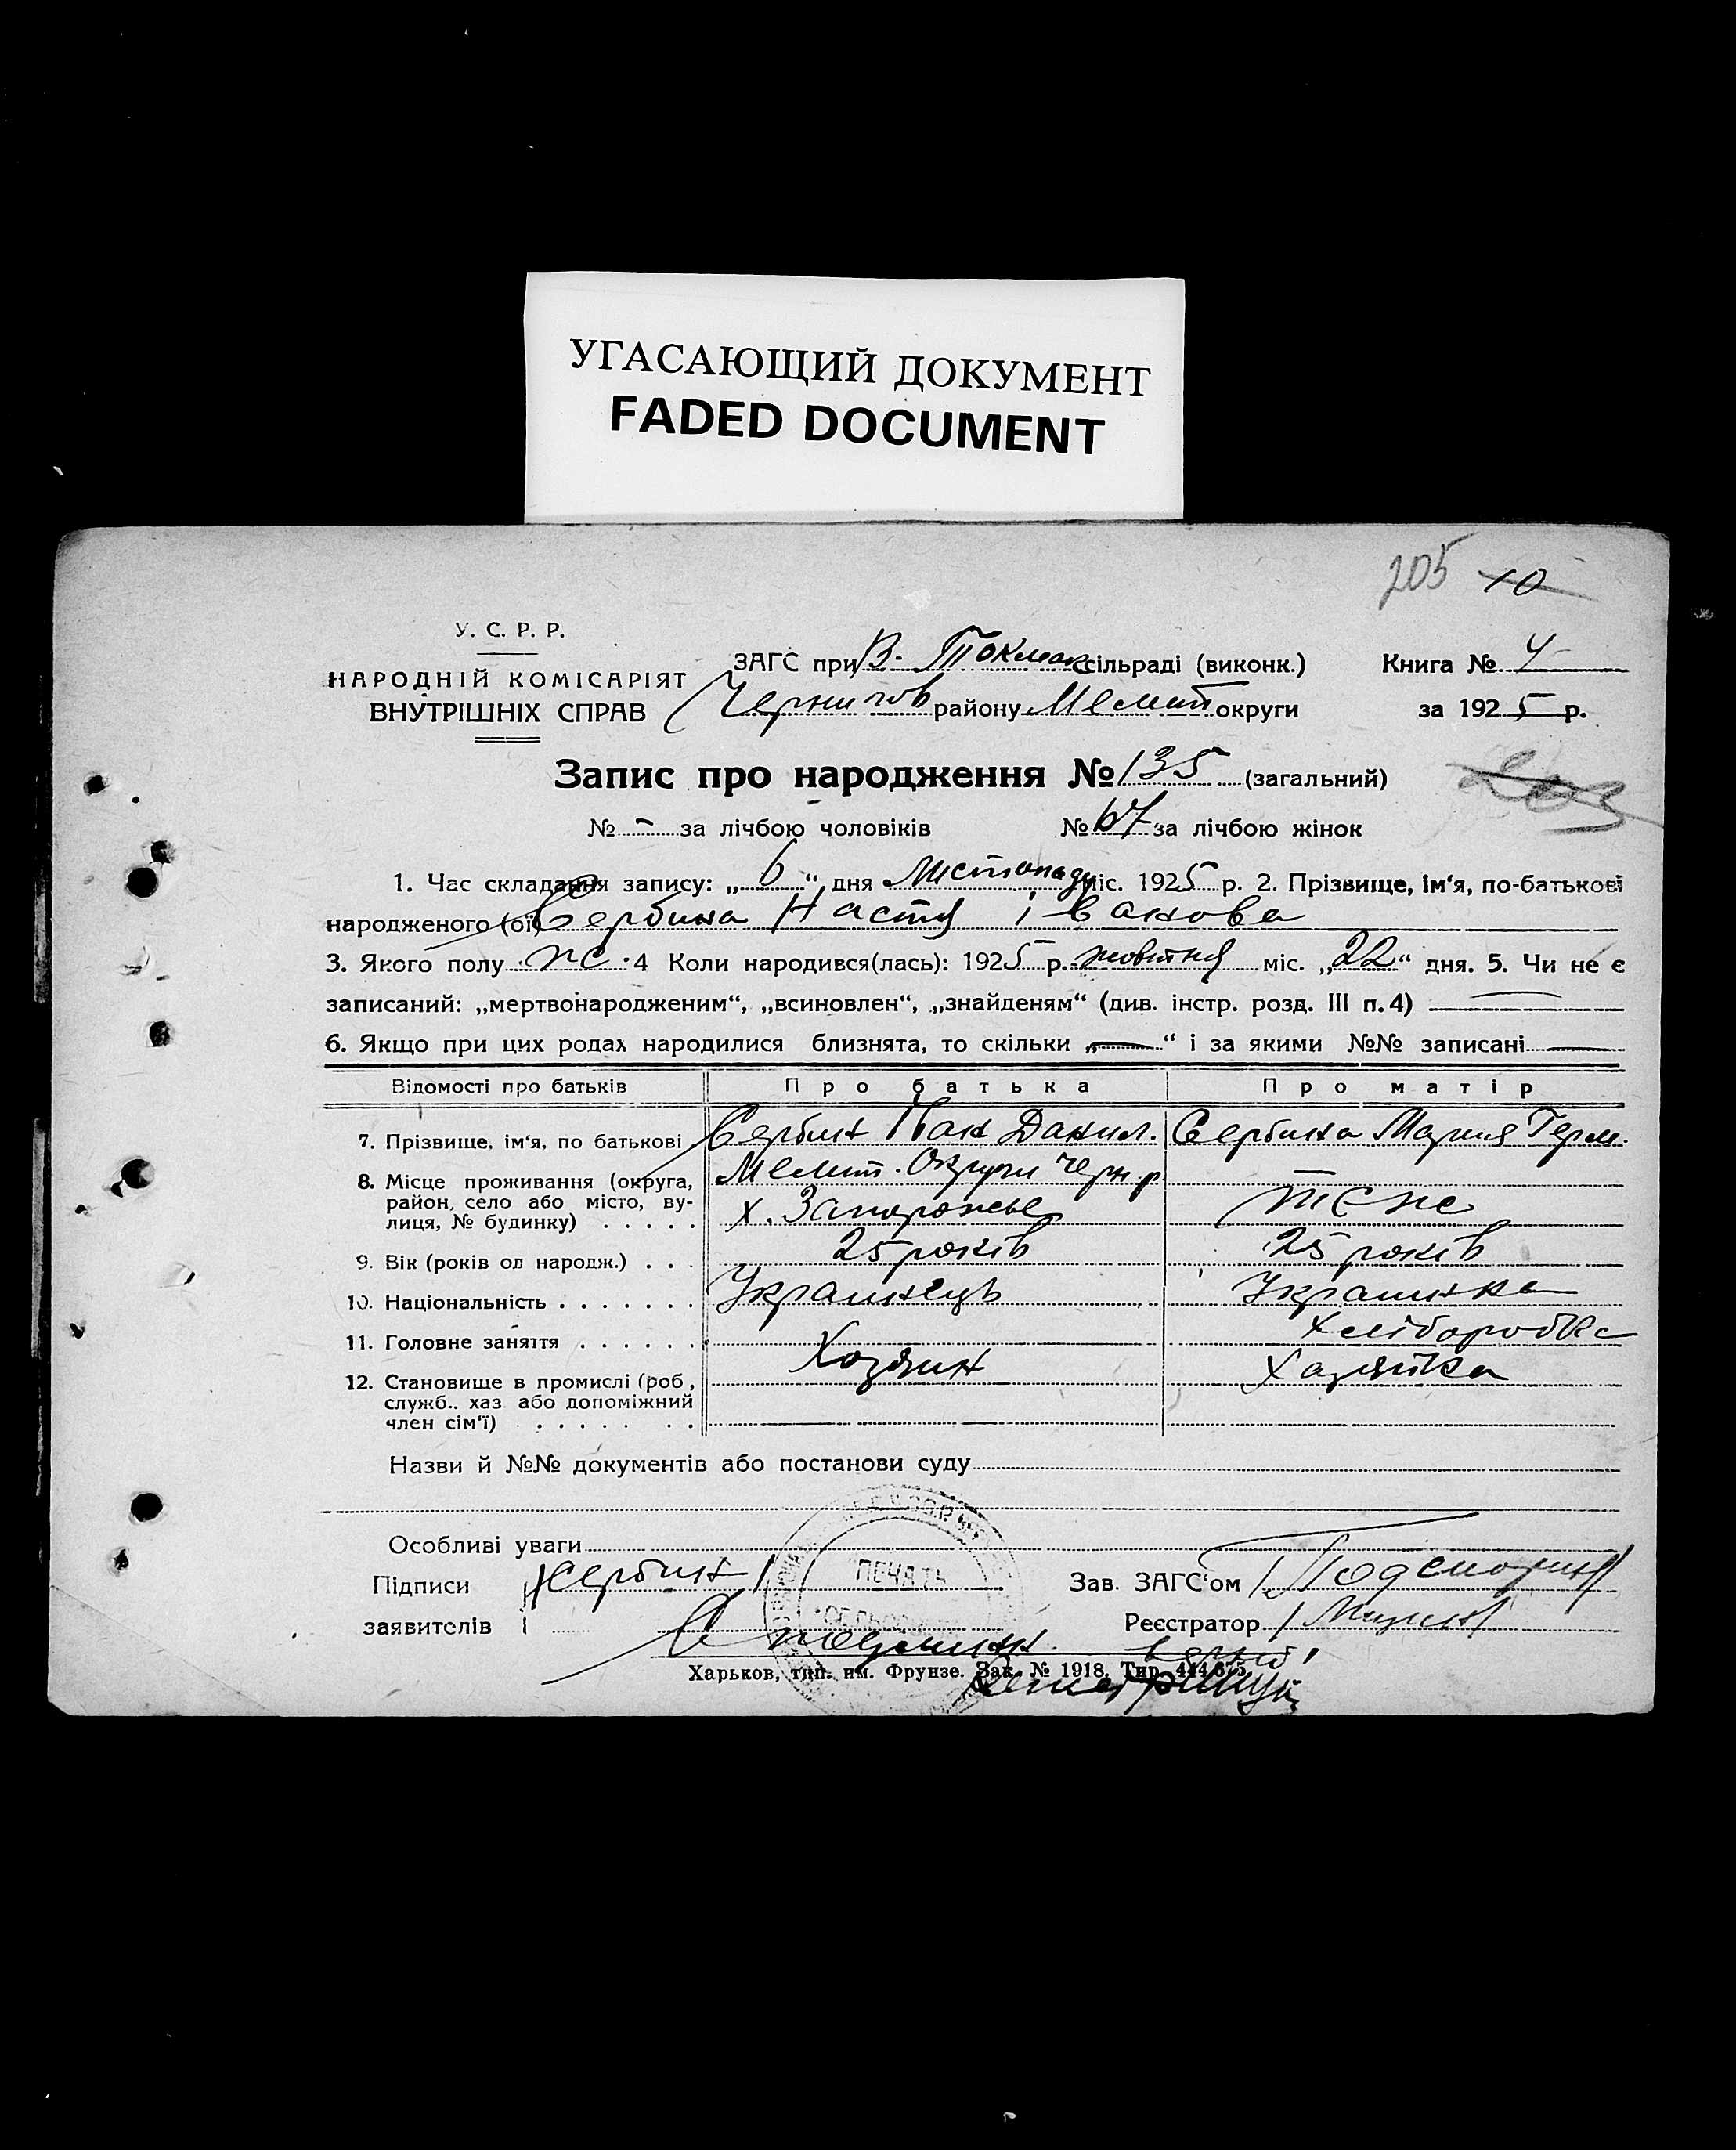 УГАСАЮЩИЙ ДОКУМЕНТ
FADED DOCUMENT
205 10
У. С. Р. Р.
НАРОДНІЙ КОМІСАРІЯТ
ВНУТРІШНІХ СПРАВ
ЗАГС при В. Токмак сільраді (виконк.) Книга № 4
Чернигов району Мелит округи за 1925 р.
Запис про народження № 135 (загальний)
203
№ - за лічбою чоловіків № 67 за лічбою жінок
1. Час складання запису: „ 6 “ дня Листопаду міс. 1925 р. 2. Прізвище, ім‘я, по-батькові
народженого (ої) Сербина Настя Іванова
3. Якого полу ж. 4 Коли народився(лась): 1925 р. жовтня міс. „22“ дня. 5. Чи не є
записаний: „мертвонародженим“, „всиновлен“, „знайденям“ (див. інстр. розд. III п. 4) —
6. Якщо при цих родах народилися близнята, то скільки „—“ і за якими №№ записані —
Відомості про батьків Про батька Про матір
7. Прізвище, ім‘я, по батькові Сербин Іван Данил. Сербина Мария Герм.
8. Місце проживання (округа, район, село або місто, вулиця, № будинку) . . . . .
Мелит. Округи Черн. р.
х. Запорожье теж
9. Вік (років од народж.) . . . 25 років 25 років
10. Національність . . . . . . . Украинець Украинка
11. Головне заняття . . . . . . Хліборобка
12. Становище в промислі (роб., служб., хаз. або допоміжний член сім‘ї) . . . . . . . Хозяин Хазяйка
Назви й №№ документів або постанови суду
Особливі уваги
Підписи Сербин
заявителів
ПЕЧАТЬ
Зав. ЗАГС‘ом
Реєстратор
Харьков, тип. им. Фрунзе. Зак. № 1918. Тир. 444.875